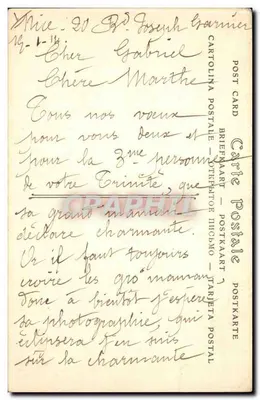 Nice - 20 Bd Joseph Garnier
19-1-14.
Cher Gabriel
Chère Marthe
Tous nos vœux
pour vous deux et
pour la 3me personne
de votre Trinité, que
sa grand maman
déclare charmante.
Or il faut toujours
croire les gro maman
donc à bientôt j'espère
sa photographie, qui
en suis
sur la charmante
Carte Postale
POST CARD POSTKARTE
BRIEFKAART — POSTKAART
CARTOLINA POSTALE — ОТКРЫТОЕ ПИСЬМО — TARJETA POSTAL
CPAPHIL